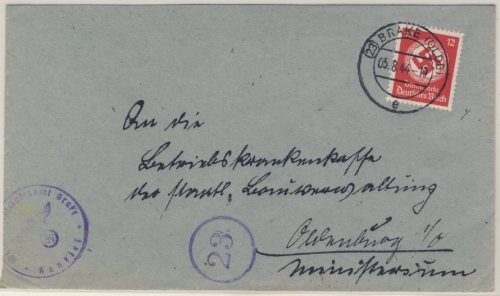 (23) BRAKE (OLDB)
05.8.44
e
12
Dienstmarke
Deutsches Reich
An die
Betriebskrankenkasse
der staatl. Bauverwaltung
Oldenburg i/O
Ministerium
23
Brake
Kanzlei